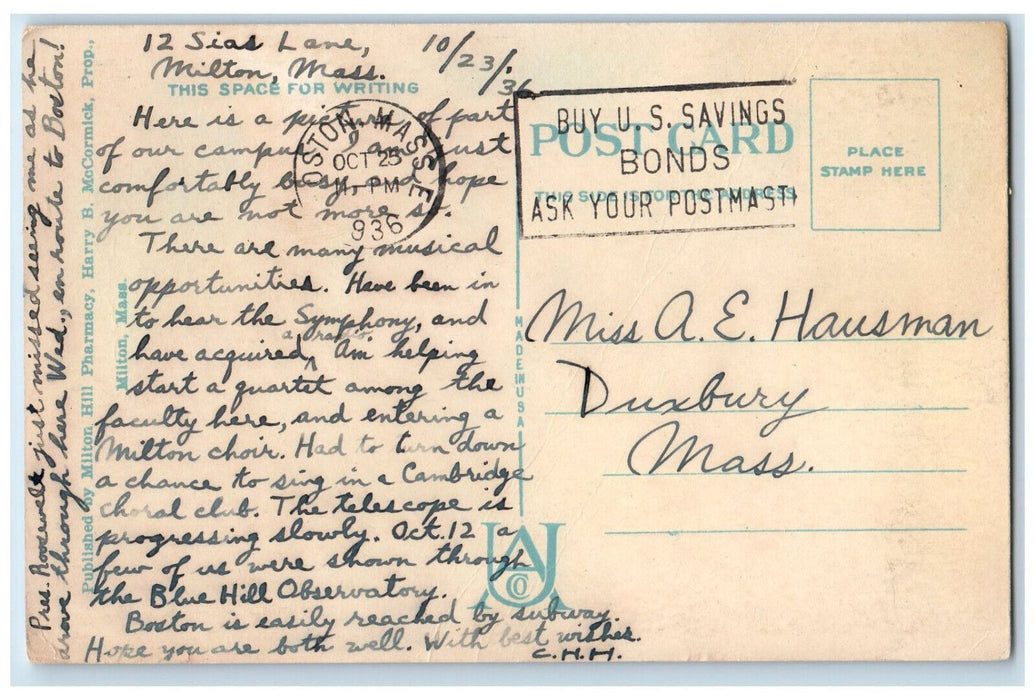 12 Sias Lane, 10/23/36
Milton, Mass.
THIS SPACE FOR WRITING
Here is a picture of part
of our campus. I am just
comfortably busy and hope
you are not more so.
There are many musical
opportunities. Have been in
to hear the Symphony, and
have acquired a radio. Am helping
start a quartet among the
faculty here, and entering a
Milton choir. Had to turn down
a chance to sing in a Cambridge
choral club. The telescope is
progressing slowly. Oct. 12 a
few of us were shown through
the Blue Hill Observatory.
Boston is easily reached by subway.
Hope you are both well. With best wishes.
C.H.H.
Pres. Roosevelt just missed seeing me as he
drove through here Wed., en route to Boston!
Published by Milton Hill Pharmacy, Harry B. McCormick, Prop.,
Milton, Mass.
OSTON, MASS
OCT 23
PM
936
BUY U.S. SAVINGS
BONDS
ASK YOUR POSTMAST
POST CARD
THIS SIDE IS FOR THE ADDRESS
PLACE
STAMP HERE
MADE IN U.S.A.
Miss A. E. Hausman
Duxbury
Mass.
CO